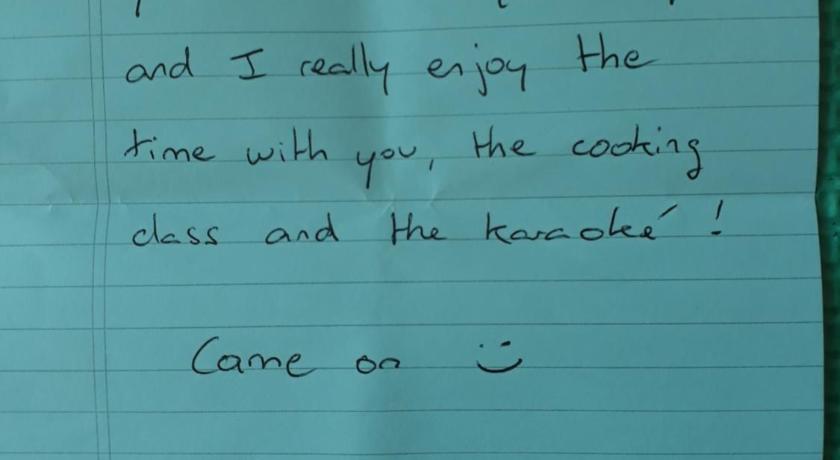 and I really enjoy the
time with you, the cooking
class and the karaoké !
Came on :)